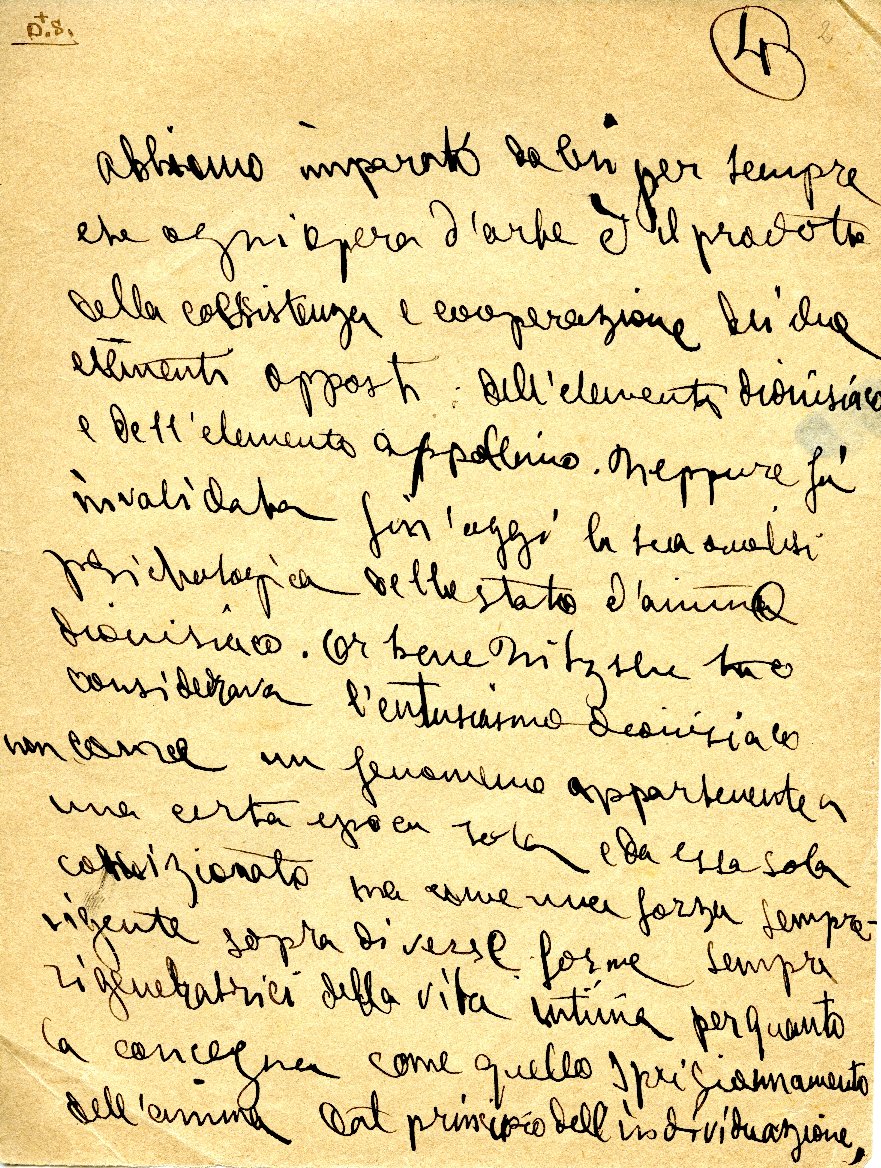 D.S.
4
2
abbiamo imparato da lui per sempre
che ogni opera d'arte è il prodotto
della coesistenza e cooperazione di due
elementi opposti dell'elemento dionisiaco
e dell'elemento appollineo. Neppure fu
invalidata fin'oggi la sua analisi
psichologica dello stato d'animo
dionisiaco. Or bene Nitzsche
considerava l'entusiasmo dionisiaco
non come un fenomeno appartenente a
una certa epoca sola e da essa sola
condizionato ma come una forza sempre
vigente sopra diverse forme sempre
rigeneratrici della vita intima per quanto
la concerna come quello sprigionnamento
dell'anima dal principio dell'individuazione,